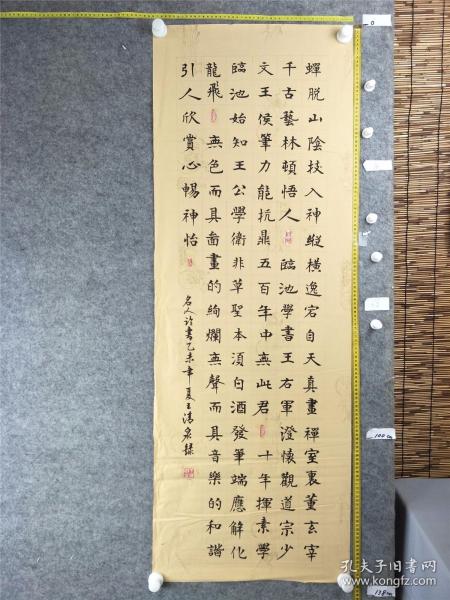 蟬脱山陰技入神縱横逸宕自天真畫禪室裏董玄宰
千古藝林頓悟人 臨池學書王右軍澄懷觀道宗少
文王侯筆力能抗鼎五百年中無此君 十年揮素學
臨池始知王公學衛非草聖本須白酒發筆端應解化
龍飛 無色而具畫畫的絢爛無聲而具音樂的和諧
引人欣賞心暢神怡
名人论書乙未年夏王清泉錄
0
100cm
138cm
孔夫子旧书网
kongfz.com